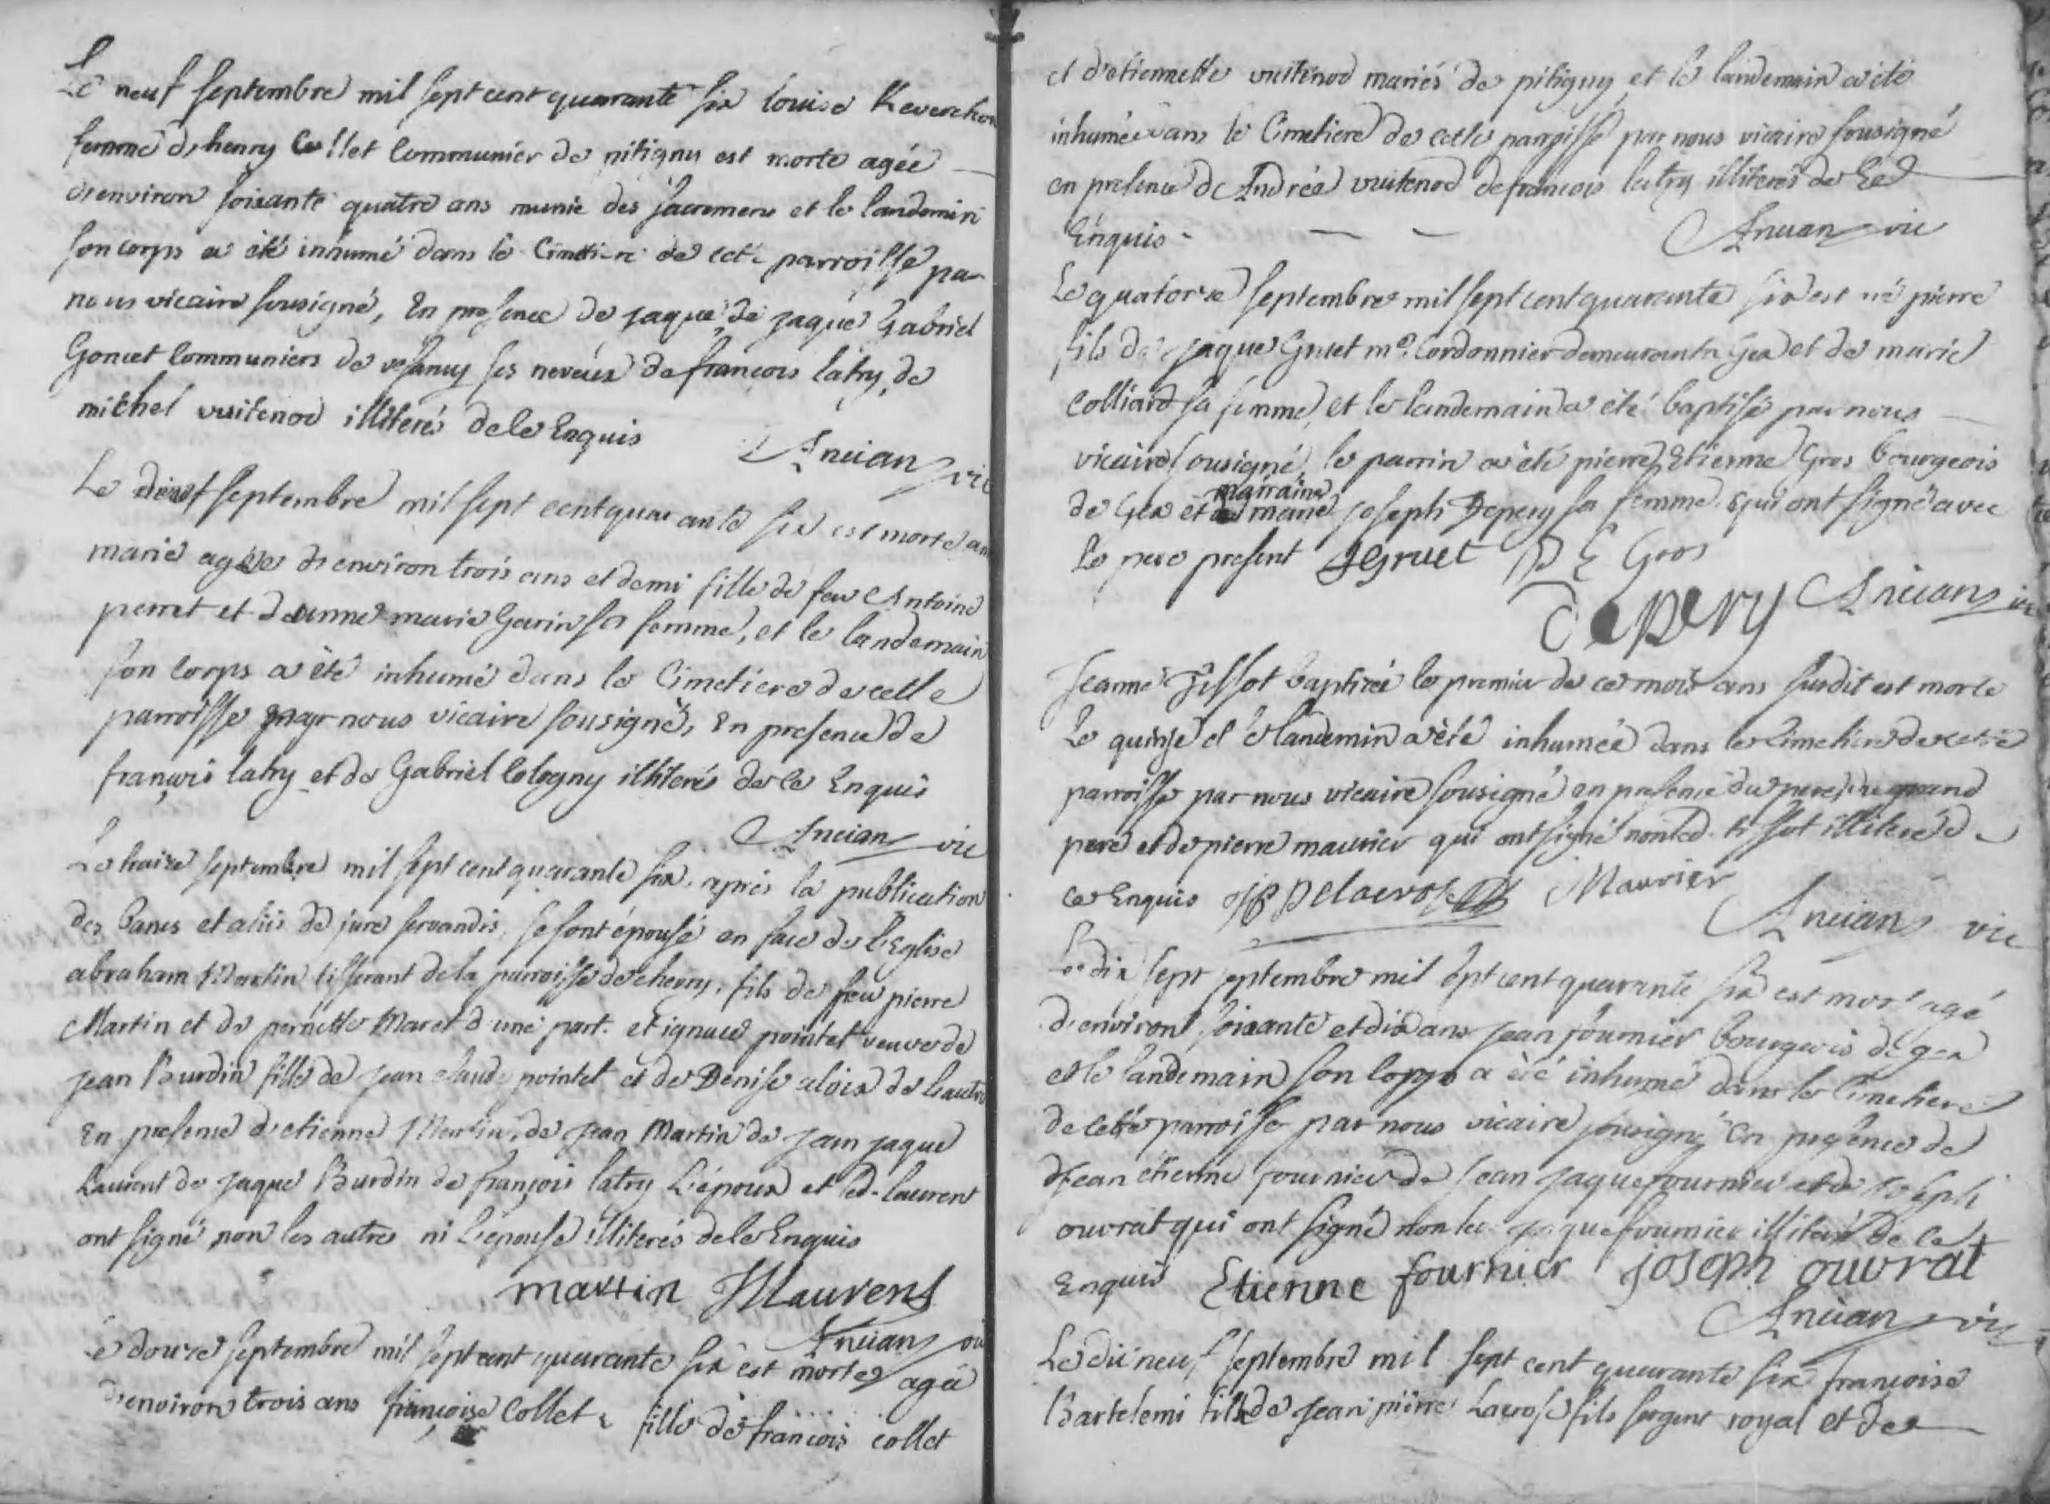 Le neuf septembre mil sept cent quarante six louise Reverchon
femme de henry Collet Communier de pitigny est morte agée
d'environ soixante quatre ans munie des sacremens et le landemin
son corps a été inhumé dans le Cimetiere de cete parroisse par
nous vicaire sousigné, En presence de jaque de jaque Gabriel
Goncet Communiers de vesancy ses neveux de françois latry, de
michel vuitenod illiterés de le Enquis
Ancian vic
Le septembre mil sept cent quarante six est morte
marie agée d'environ trois ans et demi fille de feu Antoine
perret et de anne marie Garin sa femme, et le landemain
son corps a été inhumé dans le Cimetiere de cette
parroisse par nous vicaire sousigné, En presence de
françois latry et de Gabriel Cologny illiterés de ce Enquis
Ancian vic
Le septembre mil sept cent quarante six, après la publication
des bancs et aliis de jure servandis, se sont épousé en face de l'Eglise
abraham Martin tisserant de la parroisse de chevry, fils de feu pierre
Martin et de pernette Maret d'une part. et ignace pointet veuve de
jean Burdin fille de jean claude pointet et de Denise aloix de l'autre
En presence d'etienne Martin, de jean Martin de jean jaque
Laurent de jaque Burdin de françois latry L'époux et led. laurent
ont signé non les autres ni L'épouse illiterés de le Enquis
martin JJLaurens
Ancian vic
Le douze septembre mil sept cent quarante six est morte agée
d'environ trois ans françoise Collet fille de françois collet
et d'etiennette vuitenod mariés de pitigny et le landemain a été
inhumée dans le Cimetiere de cette parroisse par nous vicaire sousigné
en presence de André vuitenod de francois latry illiterés de le
Enquis - Ancian vic
Le quatorze septembre mil sept cent quarante six est né pierre
fils de jaque Gruet me. Cordonnier demeurant a Gex et de marie
Colliard sa femme, et le landemain a été baptisé par nous
vicaire sousigné, le parrin a été pierre Etienne Gros bourgeois
de Gex et marraine marie joseph Depery sa femme qui ont signé avec
le pere present JGruet P E Gros
depery Ancian vic
Jeanne Tissot baptisée le premier de ce mois ans susdit est morte
Le quinze et le landemin a été inhumée dans le Cimetiere de cette
parroisse par nous vicaire sousigné en presence du pere, du grand
pere et de pierre maurier qui ont signé non led. tissot illiteré de
ce Enquis JP Delacrose Maurier
Ancian vic
Le dix sept septembre mil sept cent quarante six est mort agé
d'environ soixante et dix ans jean fournier bourgeois de gex
et le landemain son corps a été inhumé dans le Cimetiere
de cette parroisse par nous vicaire sousigné En presence de
d'jean etienne fournier de jean jaque fournier et de joseph
ouvrat qui ont signé non led jaque fournier illiteré de ce
Enquis Etienne fournier joseph ouvrat
Ancian vic
Le dix neuf septembre mil sept cent quarante six françoise
Bartelemi fille de jean pierre Lacrose fils sergent royal et de